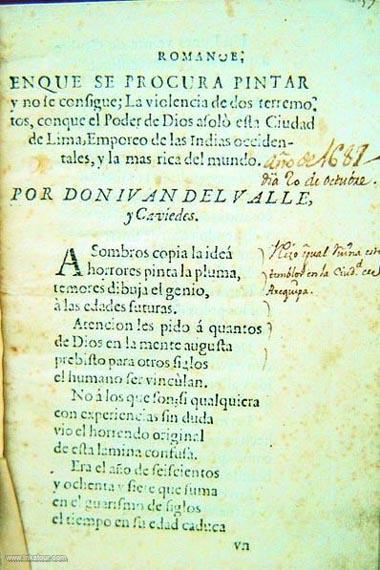 ROMANCE,
EN QUE SE PROCURA PINTAR
y no se consigue; La violencia de dos terremo-
tos, con que el Poder de Dios asolò esta Ciudad
de Lima, Emporeo de las Indias occiden-
tales, y la mas rica del mundo.
año de 1687
dia 20 de octubre.
POR DON IVAN DEL VALLE,
y Caviedes.
ASombros copia la ideá
horrores pinta la pluma,
temores dibuja el genio,
à las edades futuras.
Hizo igual Ruina este
temblor en la Ciud.d de
Arequipa.
Atencion les pido á quantos
de Dios en la mente augusta
prebisto para otros siglos
el humano ser vincùlan.
No á los que son; si qualquiera
con experiencias sin duda
vio el horrendo original
de esta lamina confusa.
Era el año de seiscientos
y ochenta y siete que suma
en el guarismo de siglos
el tiempo en su edad caduca
vn
www.inkatour.com